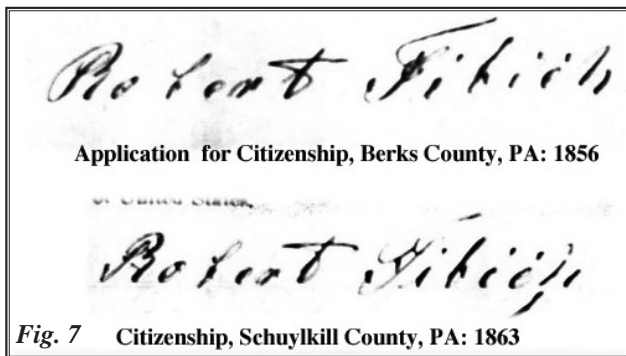 Robert Fibich
Application for Citizenship, Berks County, PA: 1856
of United States,
Robert Fibich
Fig. 7 Citizenship, Schuylkill County, PA: 1863